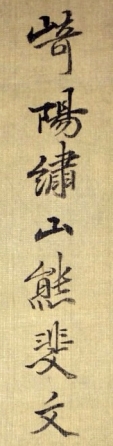 崎陽繡山熊斐文